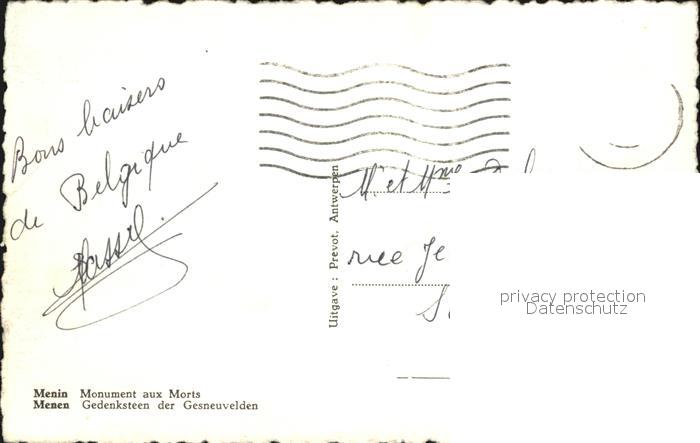 Bons baisers
de Belgique
Uitgave : Prevot, Antwerpen
Mr et Mme
rue Je
privacy protection
Datenschutz
Menin Monument aux Morts
Menen Gedenksteen der Gesneuvelden